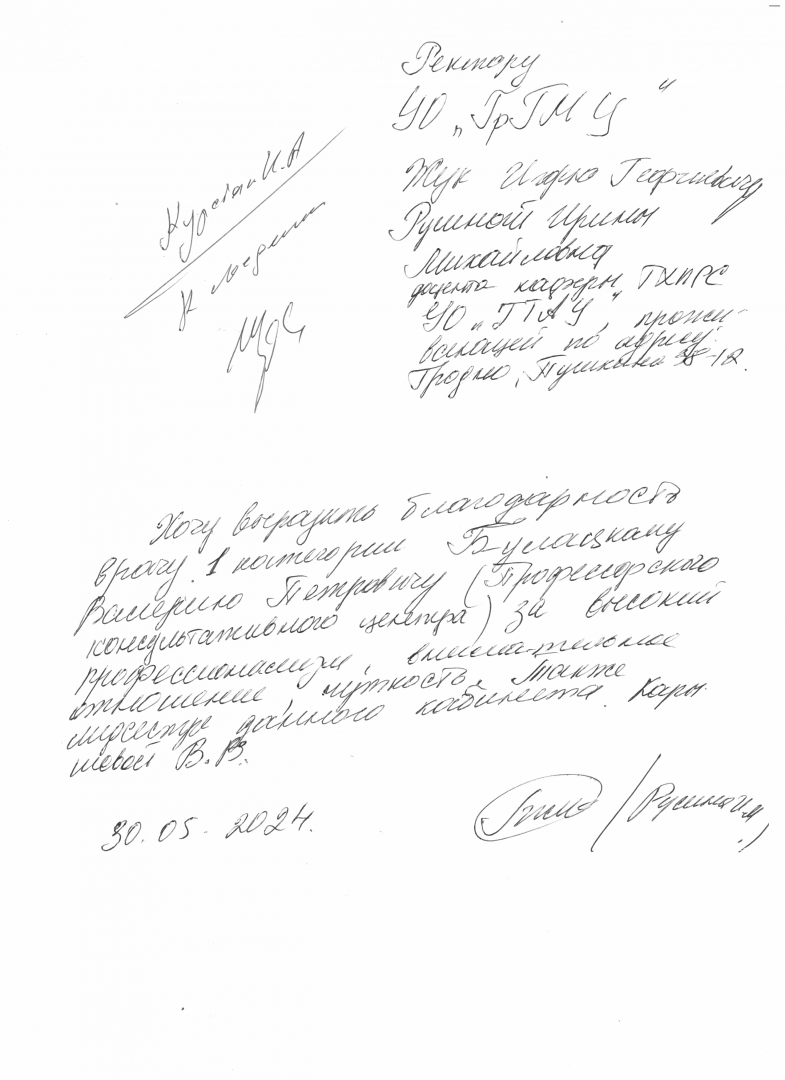 Ректору
УО „ГрГМУ"
Жук Игорю Георгиевичу
Русиной Ирины
Михайловна
доцента кафедры ТХПРС
УО „ГГАУ", прожи-
вающей по адресу:
Гродно, Пушкина 38-12.
И.А
К
Хочу выразить благодарность
врачу 1 категории Булацкому
Валерию Петровичу (Професорского
консультативного центра) за высокий
профессионализм, внима-тельное
отношение, чуткость. Также
м/сестры данного кабинета Кары-
шевой В.В.
30.05.2024.
/Русина И.М/